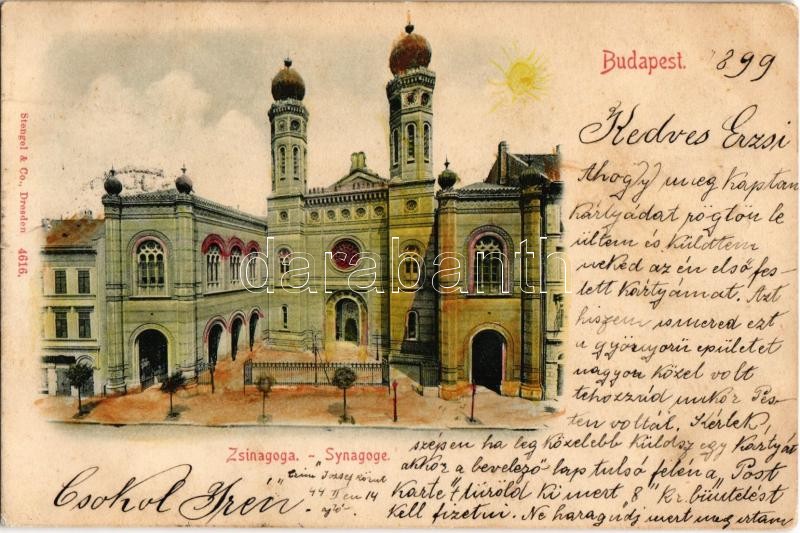 Budapest.
1899
Stengel & Co., Dresden 4616.
Kedves Erzsi
Ahogy meg kaptam
kártyádat rögtön le
ültem és küldtem
neked az én első fes-
tett kártyámat. Azt
hiszem ismered ezt
a gyönyörü épületet
nagyon közel volt
tehozzád mikor Pes-
ten voltál. Kérlek,
szépen ha leg közelebb küldsz egy kártyát
akkor a bevelező lap tulsó felén a „Post
Karte"t türöld ki mert 8 kr. büntetést
kell fizetni. Ne haragudj mert meg irtam
Zsinagoga. - Synagoge.
Csokol Iren
József körut
44 II em 14
ajtó
darabanth